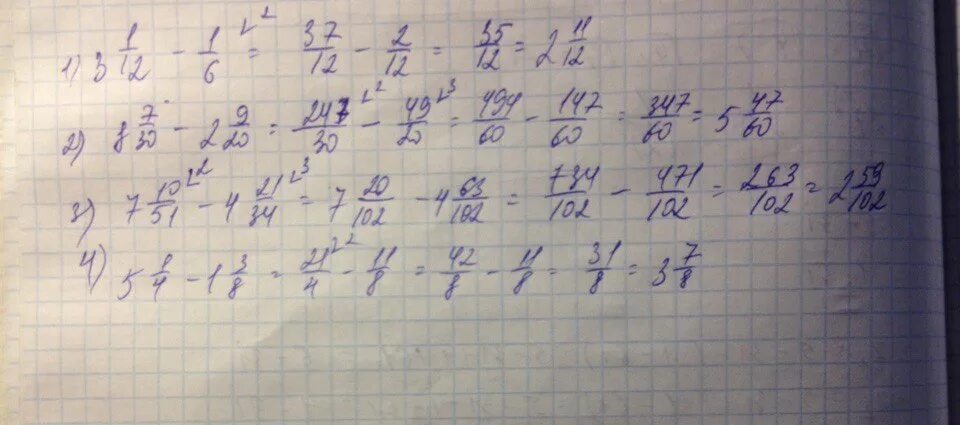 1) 3 1/12 - 1/6 ^2 = 37/12 - 2/12 = 35/12 = 2 11/12
2) 8 7/30 - 2 9/20 = 247/30 ^2 - 49/20 ^3 = 494/60 - 147/60 = 347/60 = 5 47/60
3) 7 10/51 ^2 - 4 21/34 ^3 = 7 20/102 - 4 63/102 = 734/102 - 471/102 = 263/102 = 2 59/102
4) 5 1/4 - 1 3/8 = 21/4 ^2 - 11/8 = 42/8 - 11/8 = 31/8 = 3 7/8